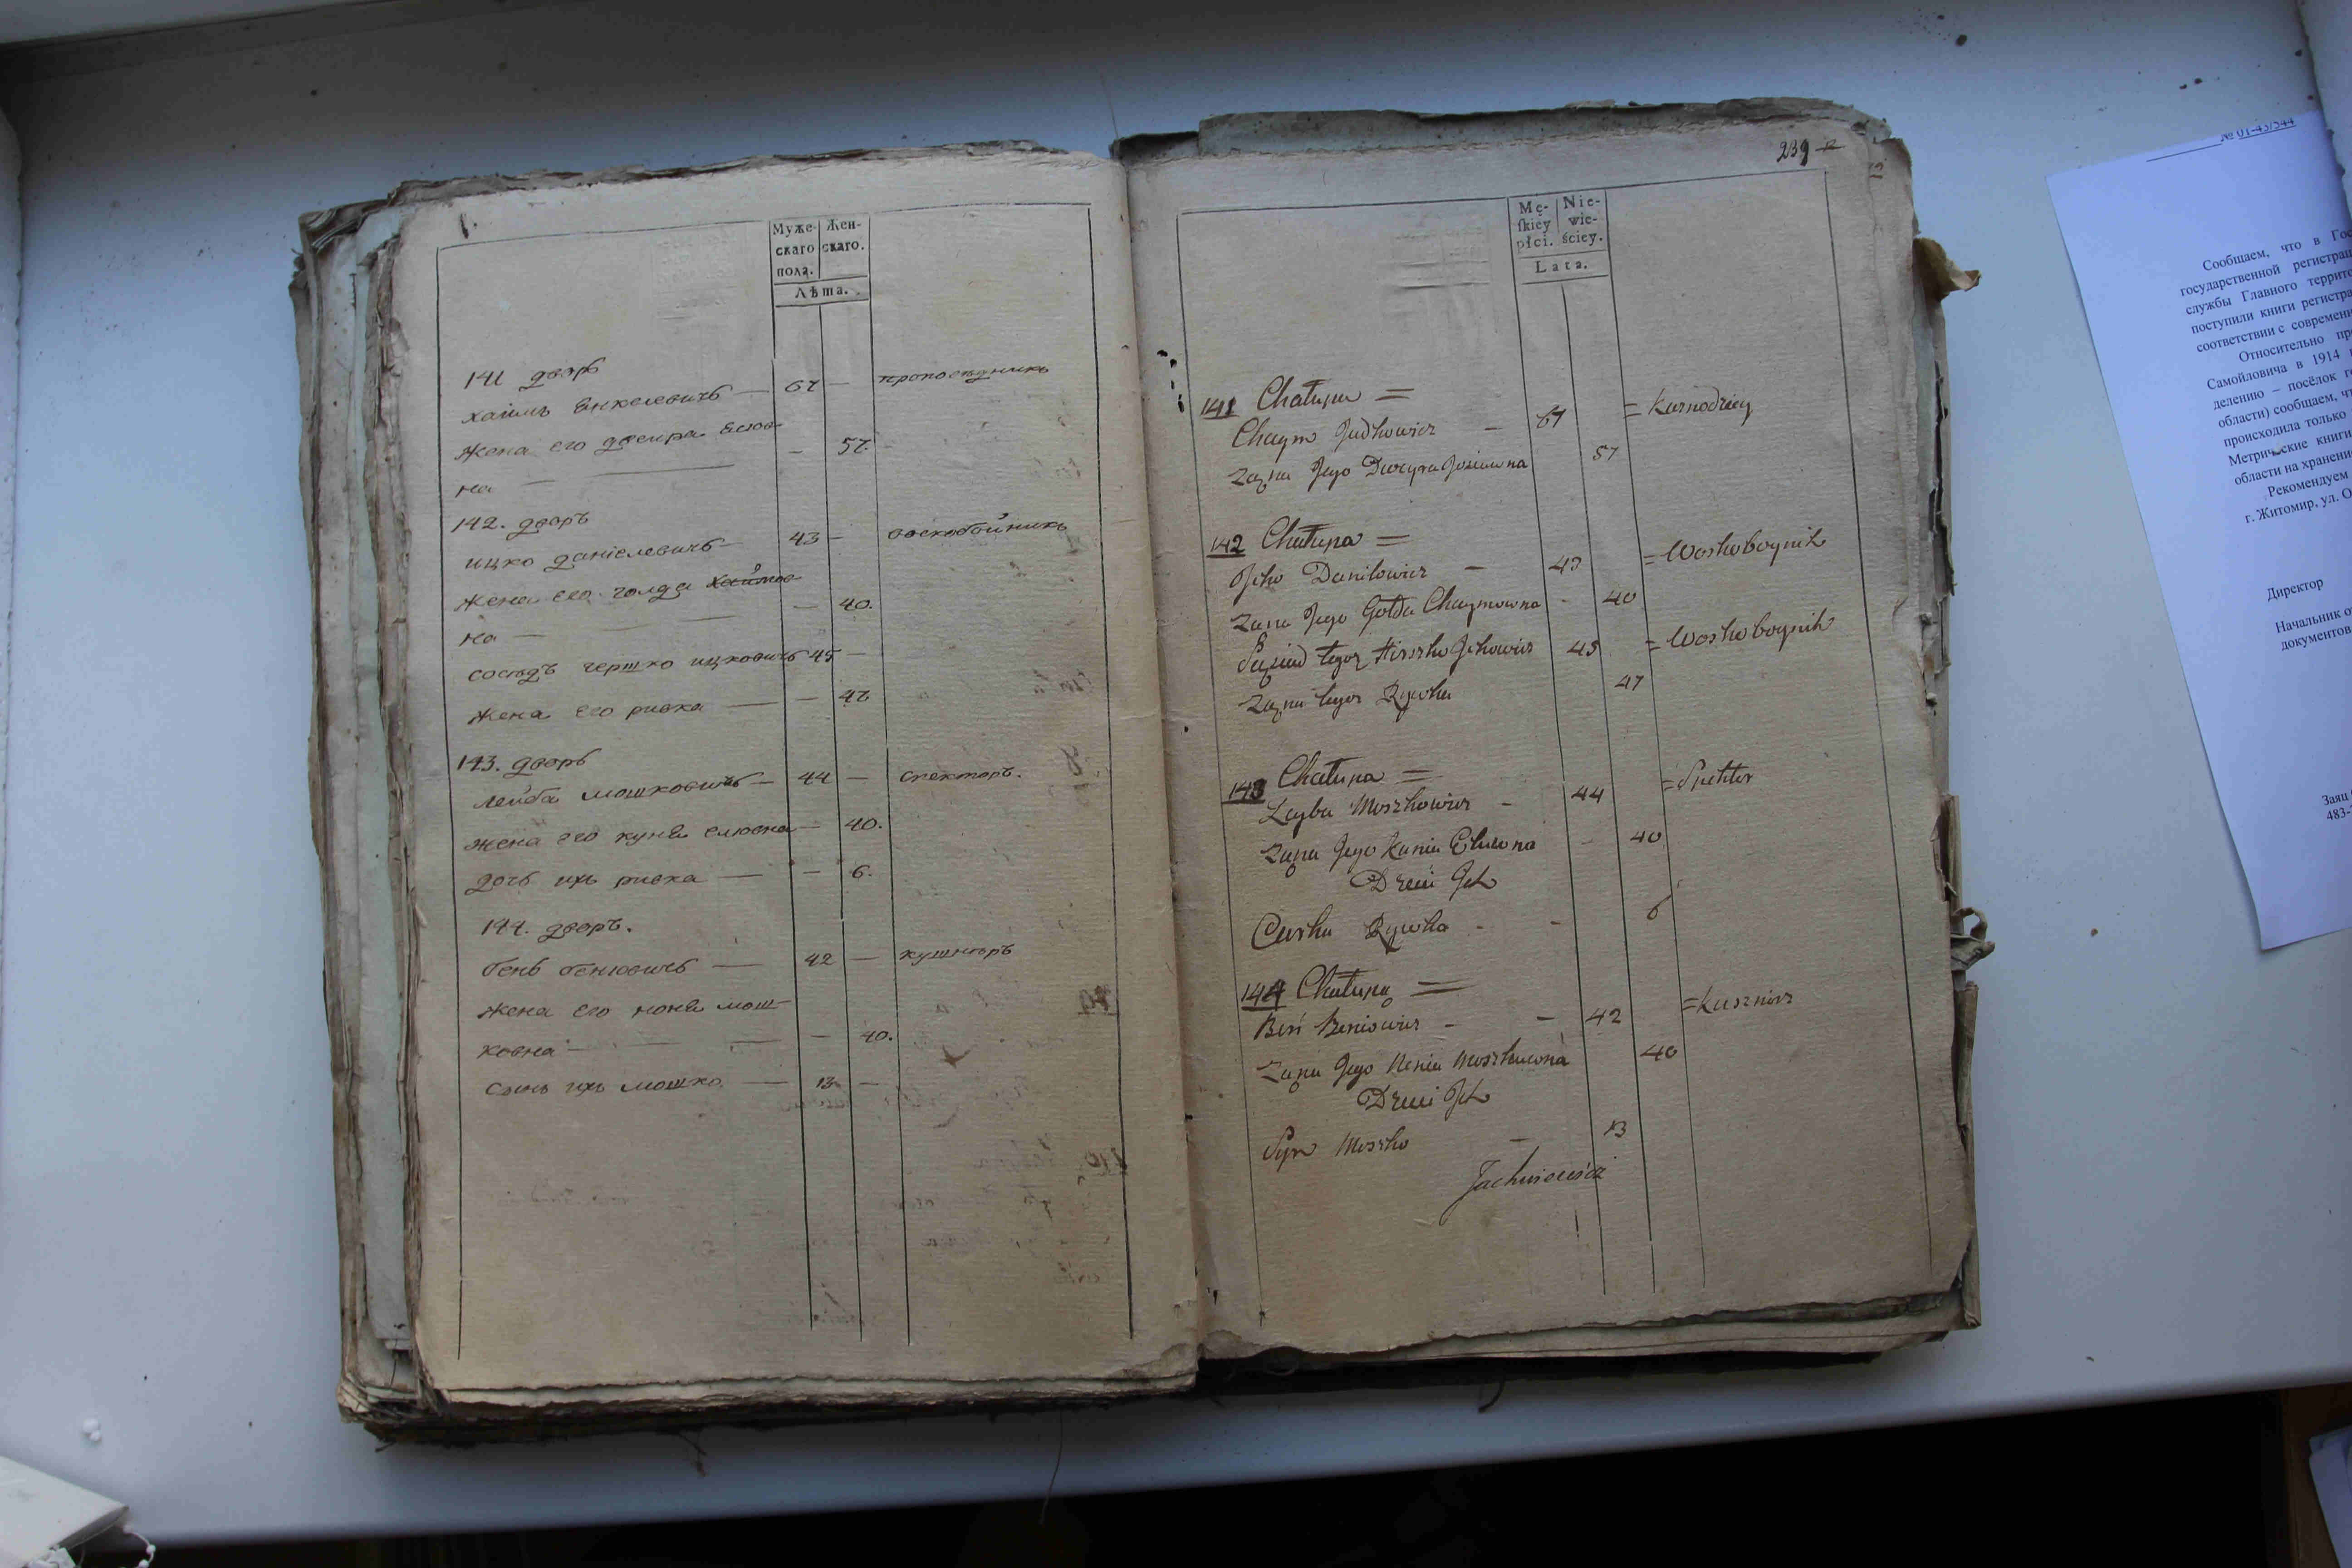 Муже-
скаго
пола.
Жен-
скаго.
Лѣта.
141 дворъ
хаимъ Енкелевичъ — 67 — проповѣдникъ
жена его двеира Есіов
на — — 57.
142. дворъ
ицко даніелевичъ — 43 — воскобойникъ
жена его голда хаимов
на — — 40.
сосѣдъ гершко ицковичъ 45 —
жена его ривка — — 47
143. дворъ
лейба мошковичъ — 44 — спекторъ.
жена его куня елювна — 40.
дочь ихъ ривка — — 6.
144. дворъ.
бень бенювичъ — 42 — кушнѣръ
жена его неня мош-
ковна — — — 40.
сынъ ихъ мошко — 13 —
239
Mę-
skiey
płci.
Nie-
wie-
ściey.
Lata.
141 Chałupa =
Chaym Judkowicz — 67 = Kaznodziey
Zona Jego Dweyra Josiowna 57
142 Chałupa =
Jcko Danilowicz — 43 = Woskoboynik
Zona Jego Gołda Chaymowna - 40
Sąsiad tegoz Herszko Jckowicz 45 = Woskoboynik
Zona tegoz Rywka 47
143 Chałupa =
Leyba Moszkowicz - 44 = Spektor
Zona Jego Kunia Eluwna - 40
Dzieci Jch
Curka Rywka - - 6
144 Chałupa =
Beń Beniowicz - - 42 = Kusznierz
Zona Jego Nenia Moszkowna 40
Dzieci Jch
Syn Moszko - 13
№ 01-43/544
Сообщаем, что в Гос
государственной регистрац
службы Главного террито
поступили книги регистра
соответствии с современн
Относительно пр
Самойловича в 1914
делению – посёлок г
области) сообщаем, ч
происходила только
Метрические книги
области на хранени
Рекомендуем
г. Житомир, ул. О
Директор
Начальник о
документов
Заяц
483-